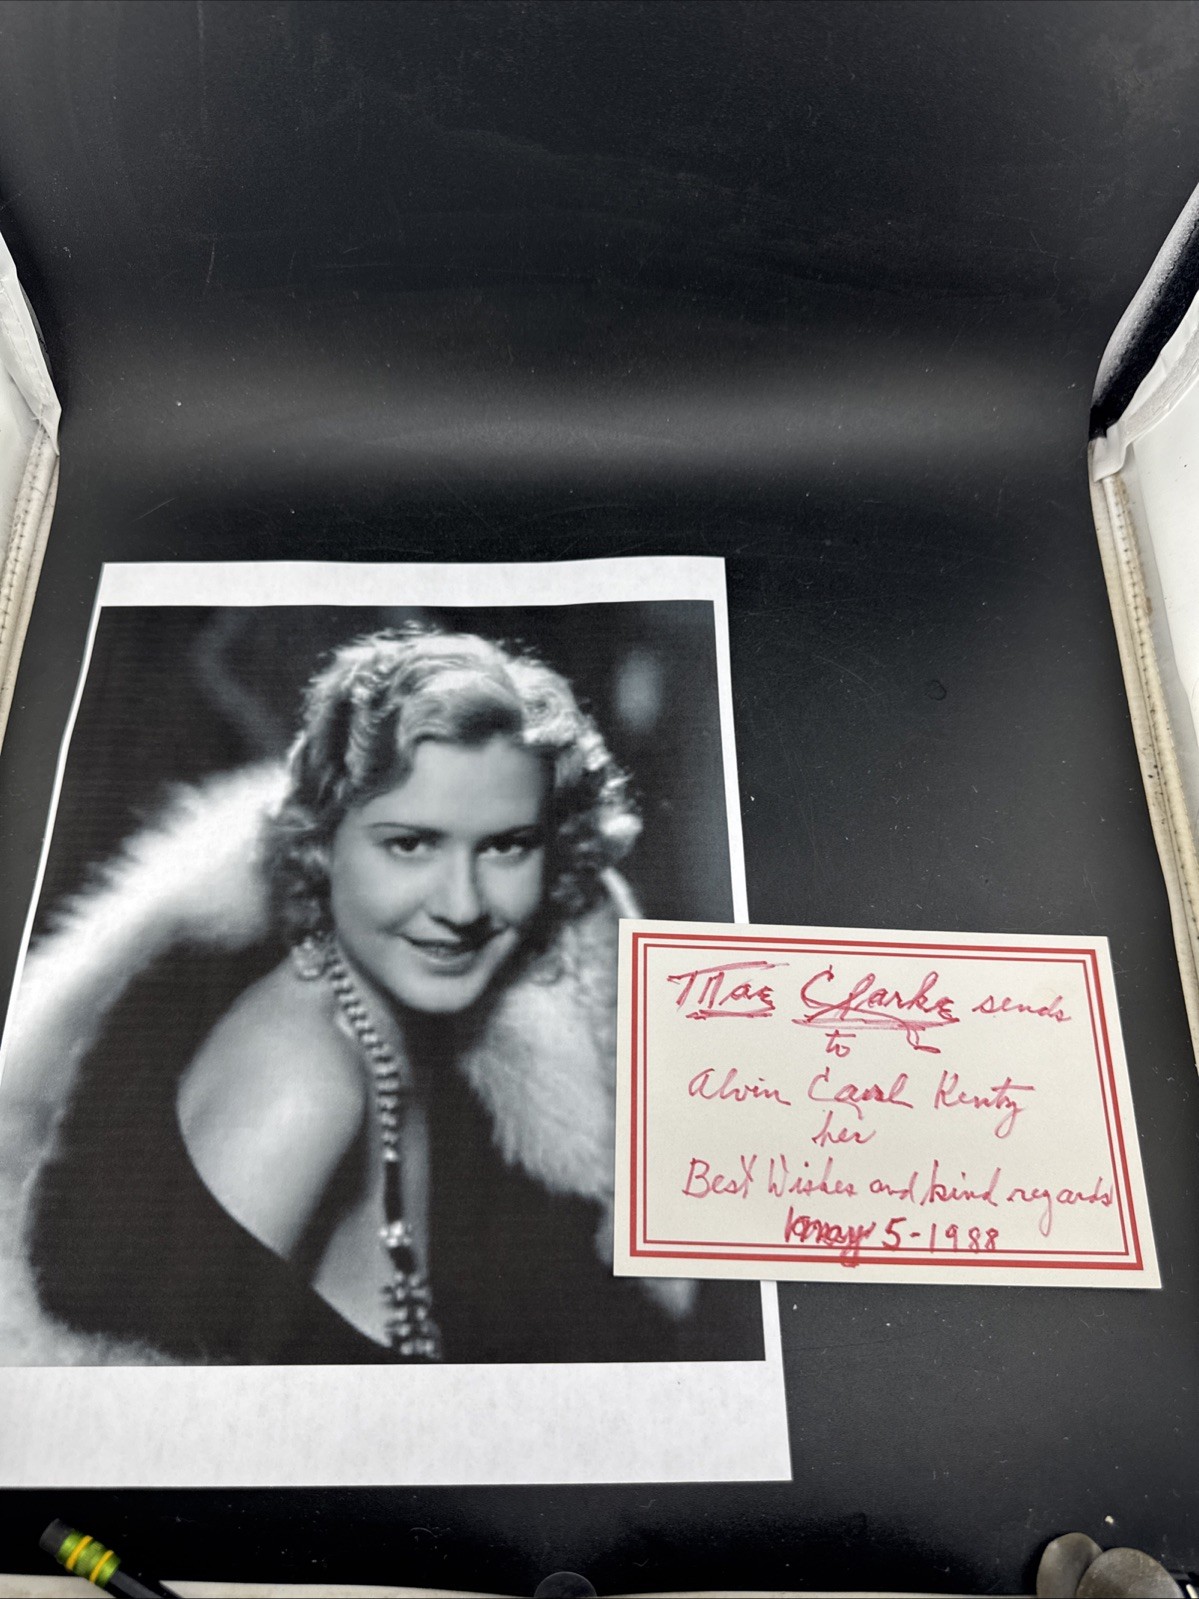 Mae Clarke sends
to
Alvin Carl Kentz
her
Best Wishes and kind regards
May 5-1988